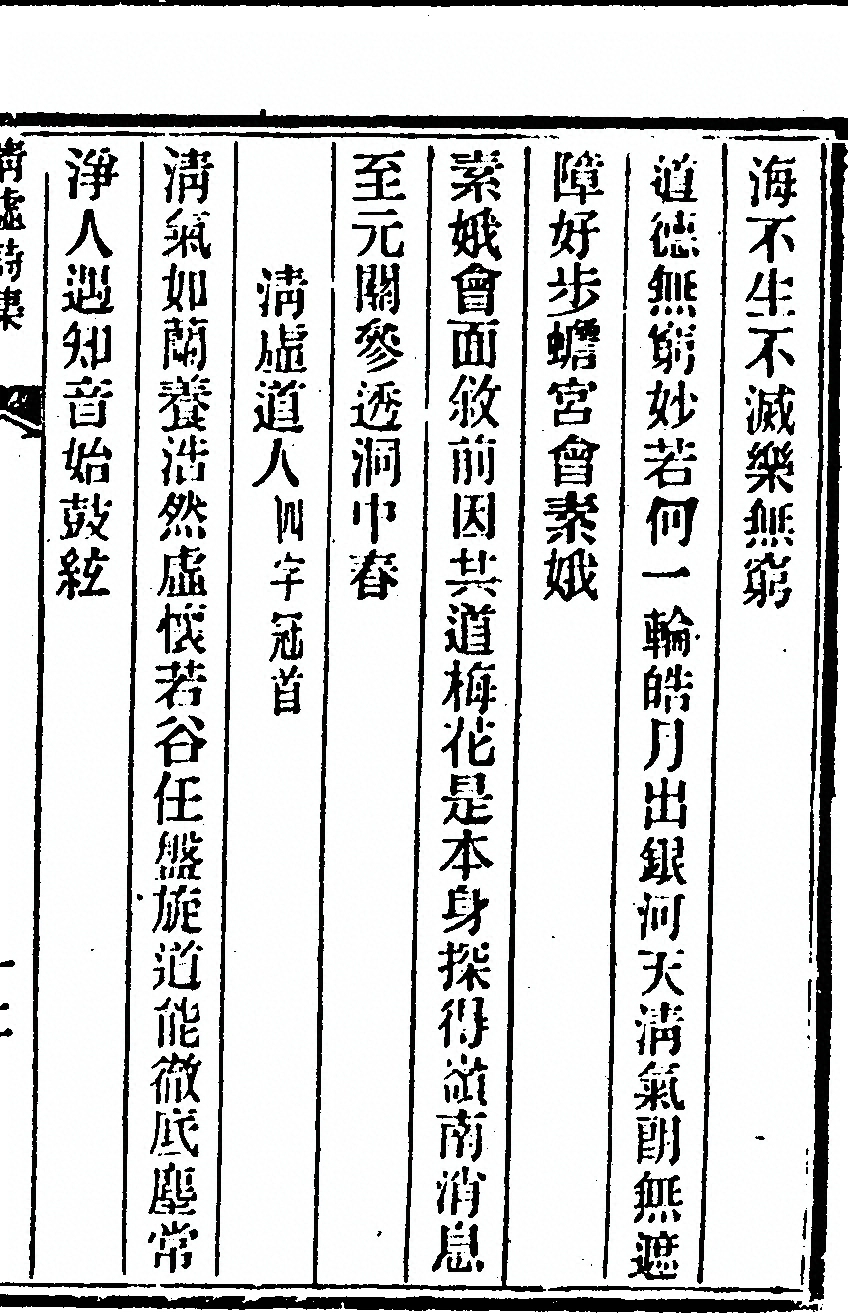 海不生不滅樂無窮
道德無窮妙若何一輪皓月出銀河天淸氣朗無遮
障好步蟾宮會素娥
素娥會面敘前因共道梅花是本身探得嶺南消息
至元關參透洞中春
淸虛道人四字冠首
淸氣如蘭養浩然虛懷若谷任盤旋道能徹底塵常
淨人遇知音始鼓絃
淸虛詩集
十二